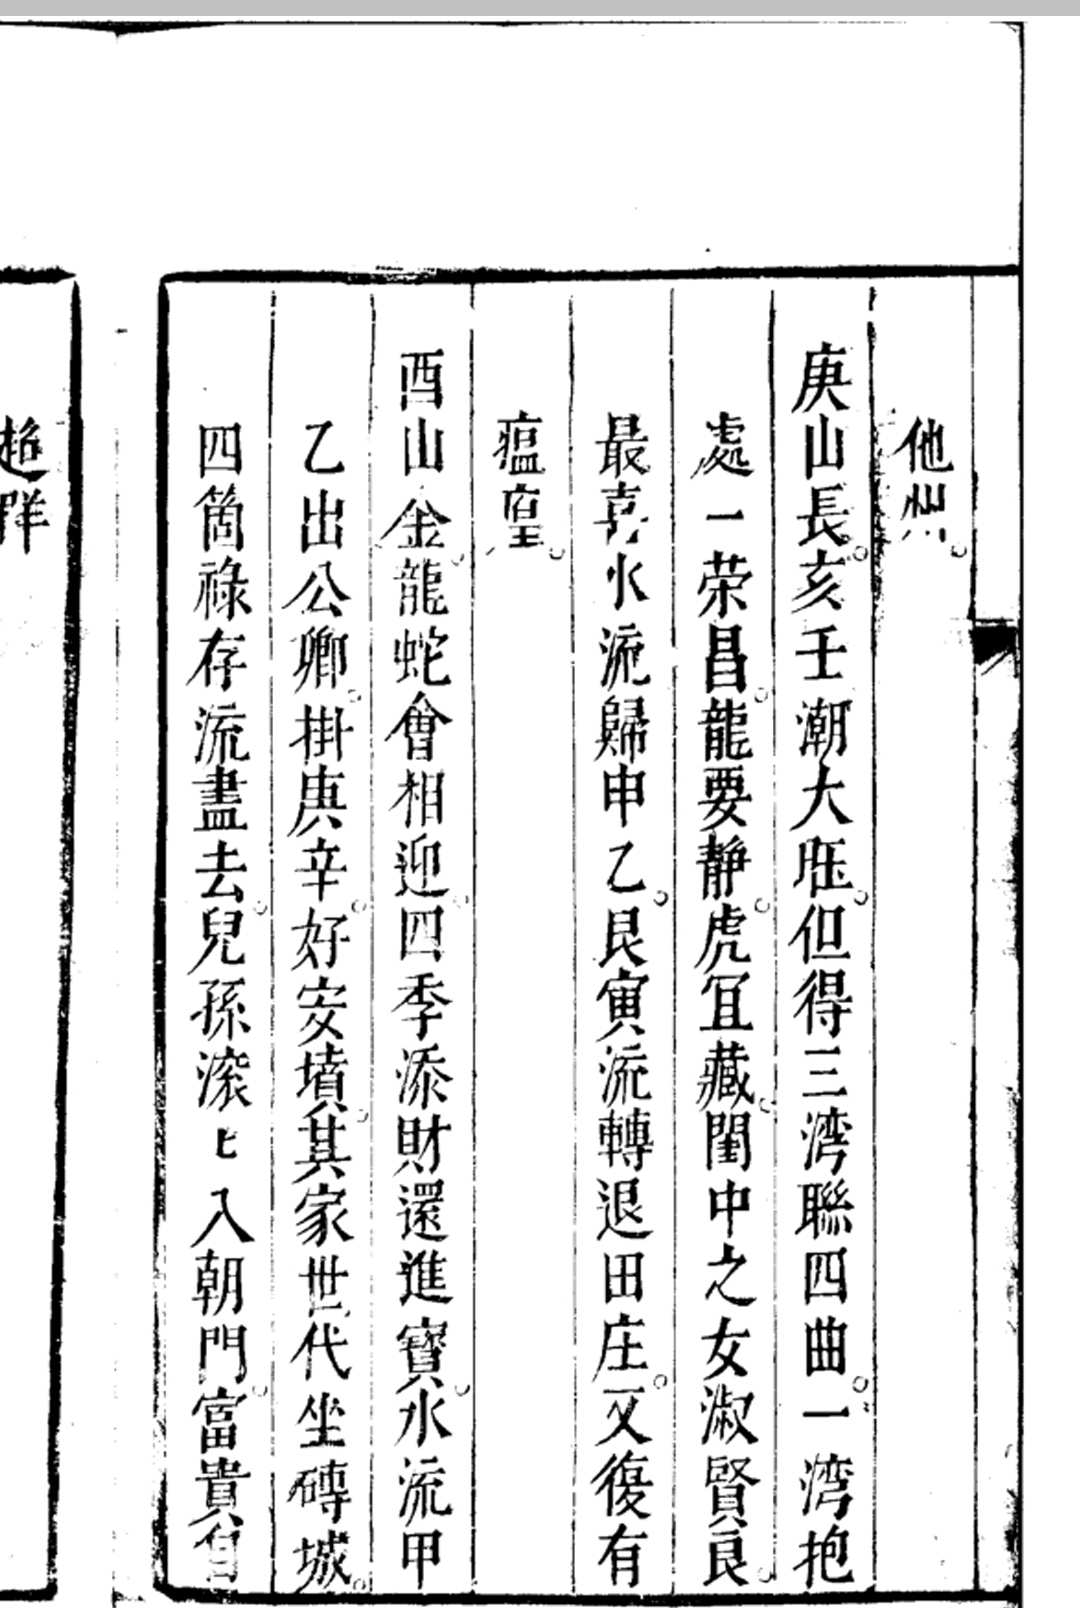 他州
庚山長亥壬潮大旺但得三湾聯四曲一湾抱
處一荣昌龍要靜虎宜藏閨中之女淑賢良
最喜水流歸申乙艮寅流轉退田庄又復有
瘟瘟
酉山金龍蛇會相迎四季添財還進寶水流甲
乙出公卿掛庚辛好安墳其家世代坐磚城
四箇祿存流盡去兒孫滚匕入朝門富貴自
趂群